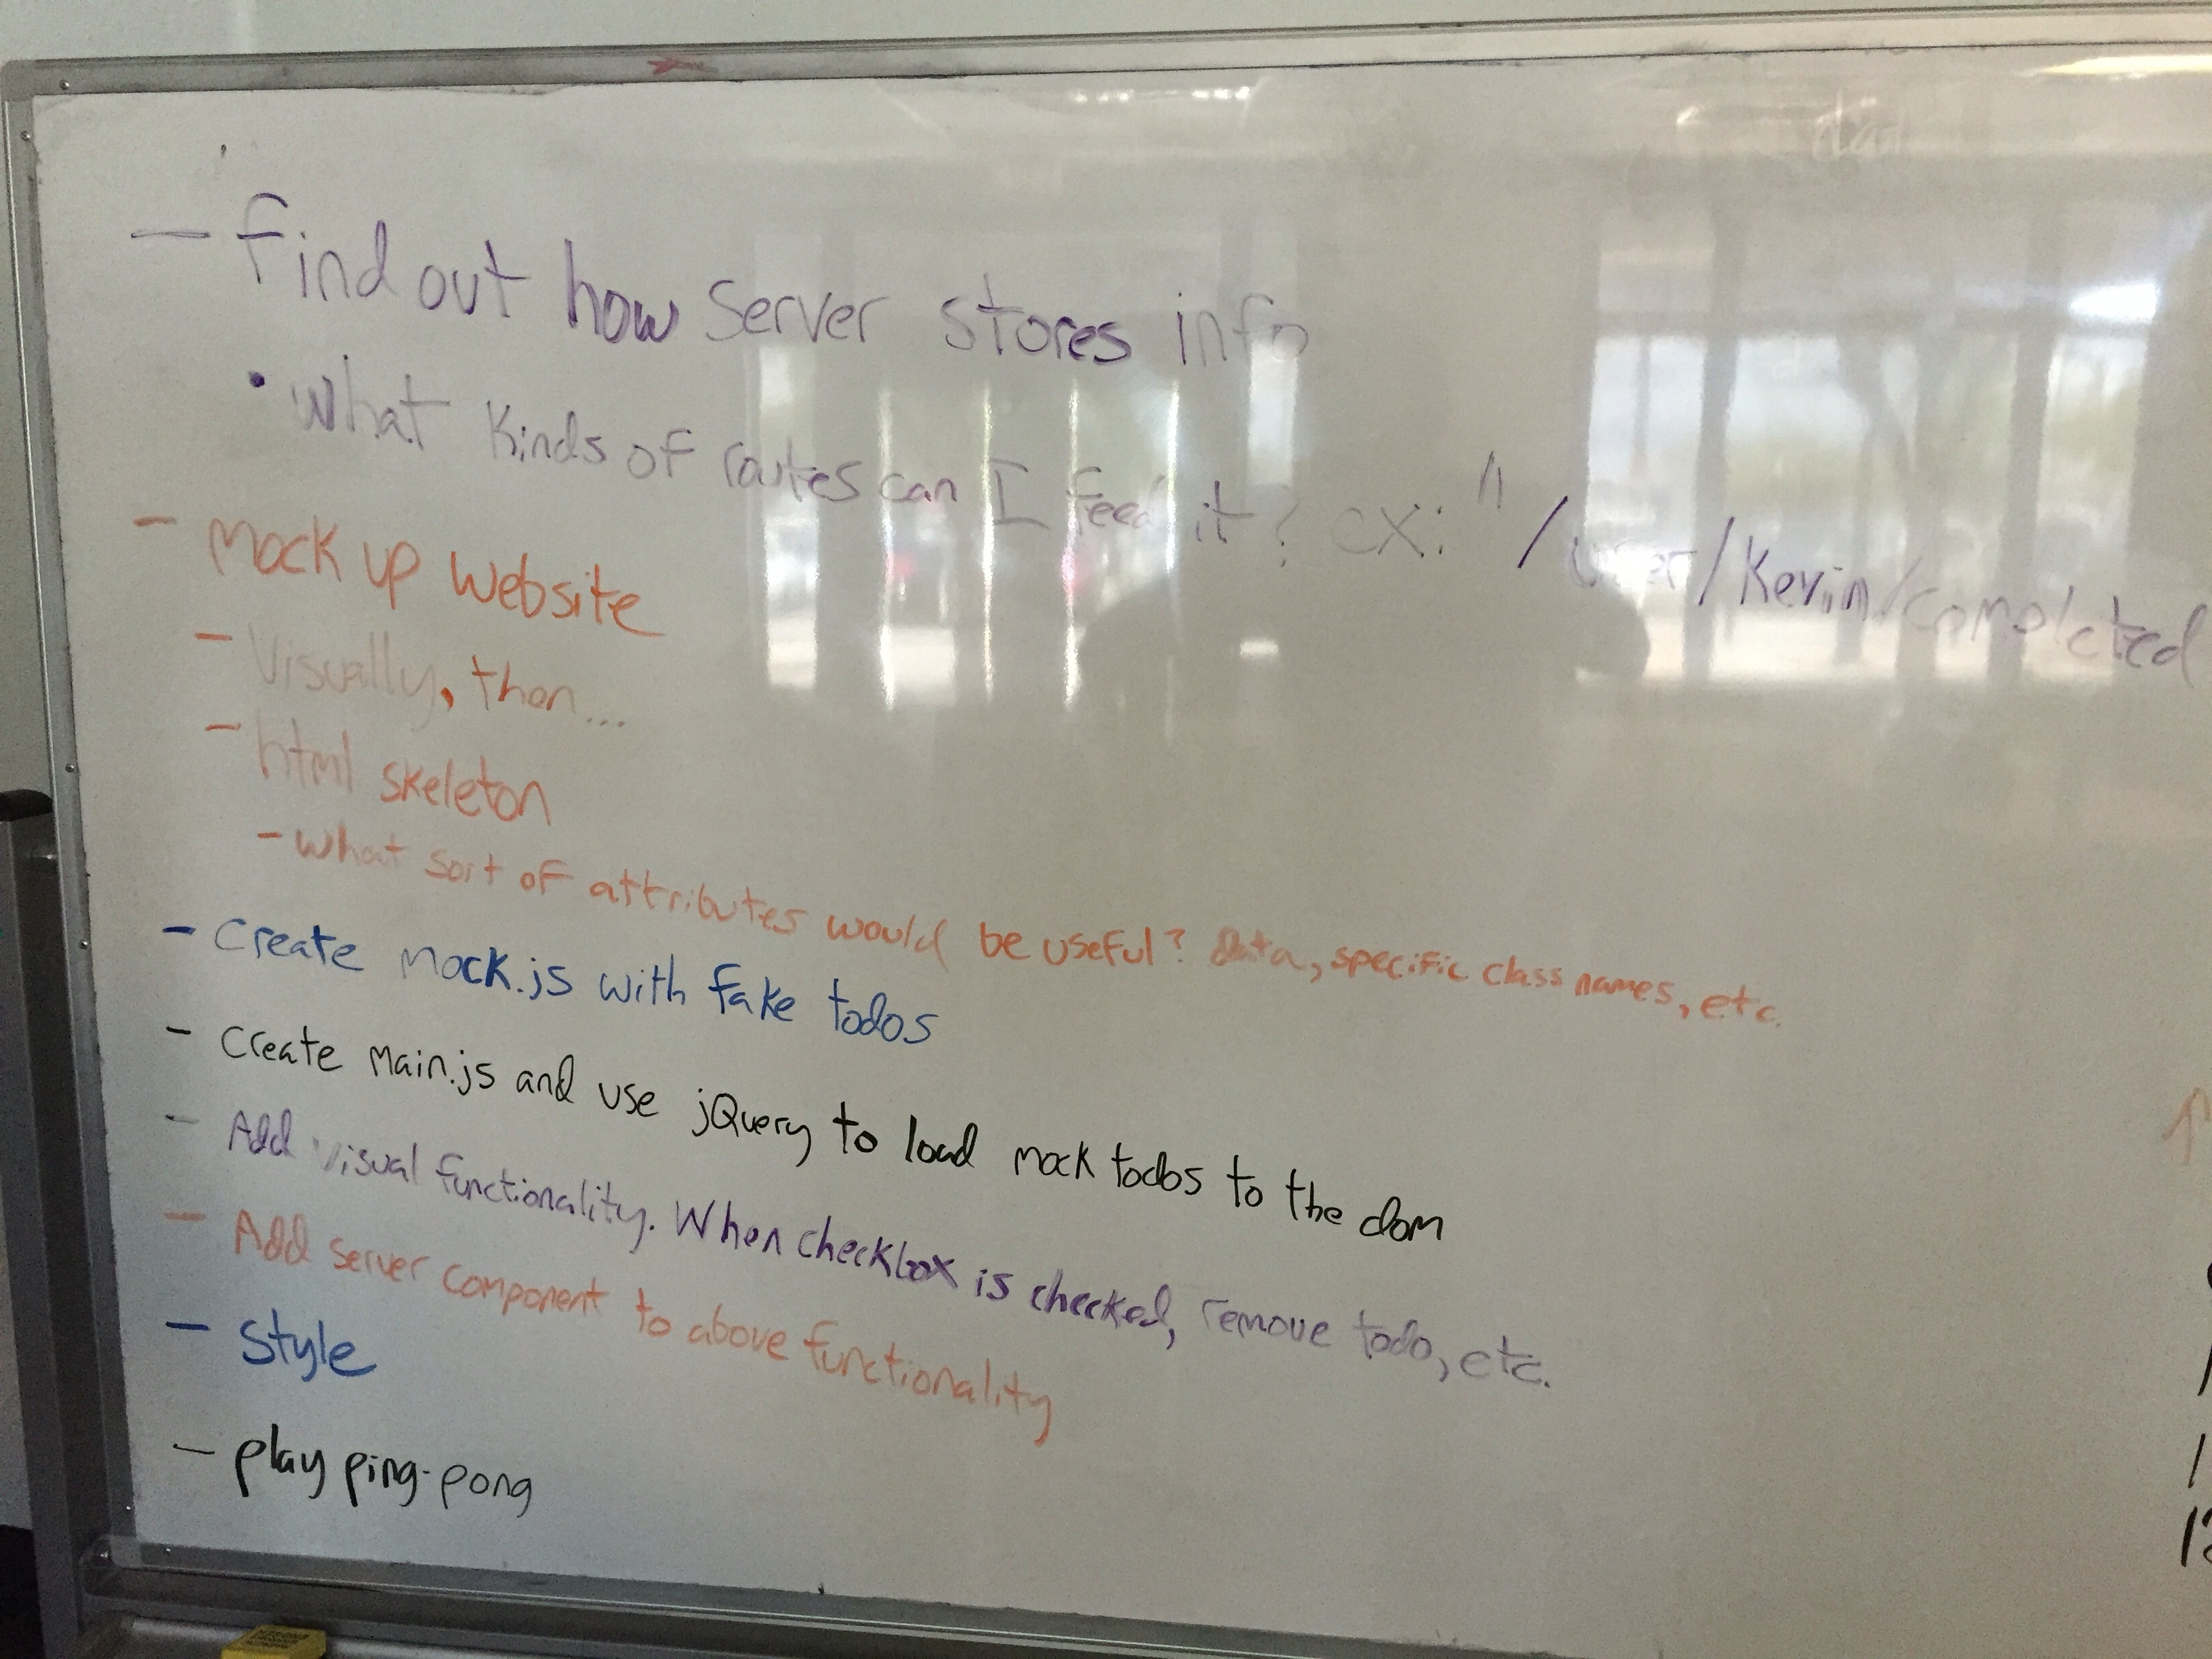 — find out how server stores info
• What kinds of routes can I feed it? ex: "/user/Kevin/completed
- Mock up website
- Visually, then...
- html skeleton
- what sort of attributes would be useful? data, specific class names, etc.
- Create mock.js with fake todos
- Create main.js and use jQuery to load mock todos to the dom
- Add visual functionality. When checkbox is checked, remove todo, etc.
- Add server component to above functionality
- Style
- play ping-pong